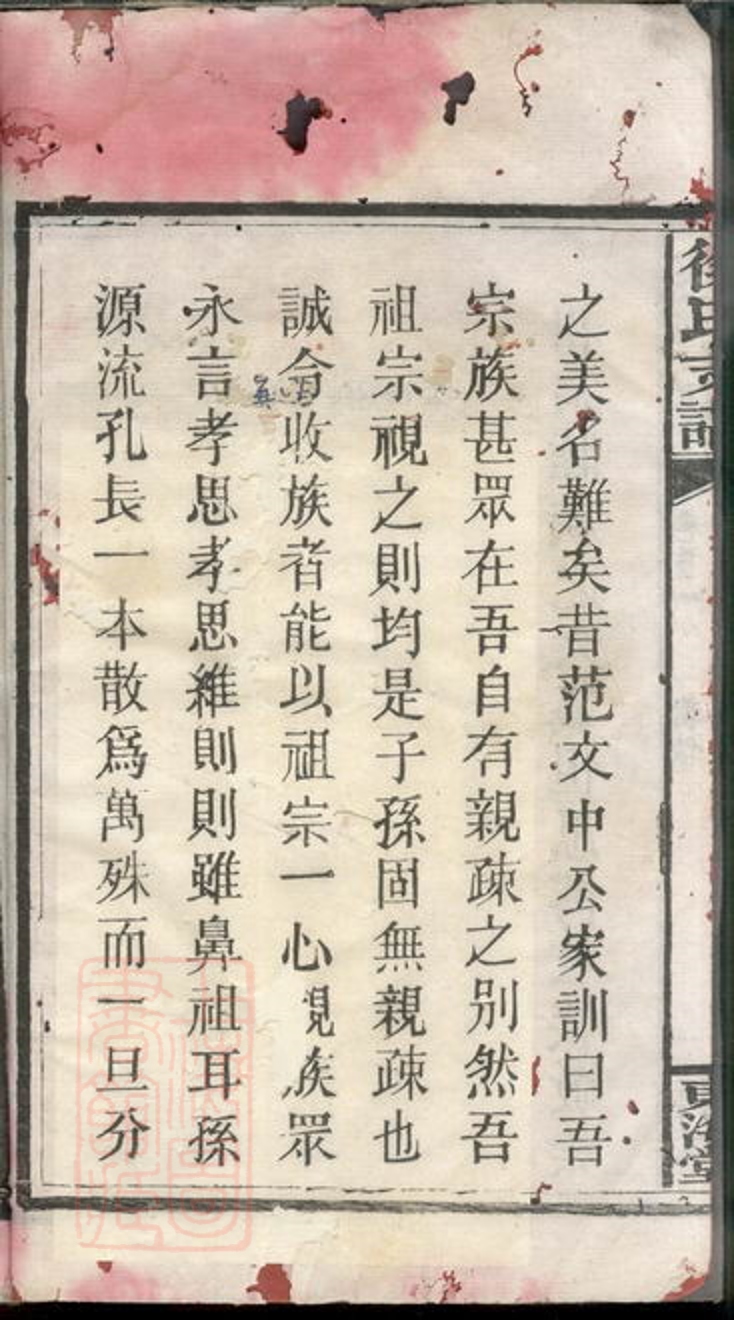 徐氏支譜
東海堂
之美名難矣昔范文中公家訓曰吾
宗族甚眾在吾自有親疎之別然吾
祖宗視之則均是子孫固無親疎也
誠合收族者能以祖宗一心視族眾
永言孝思孝思維則則雖鼻祖耳孫
源流孔長一本散爲萬殊而一旦分